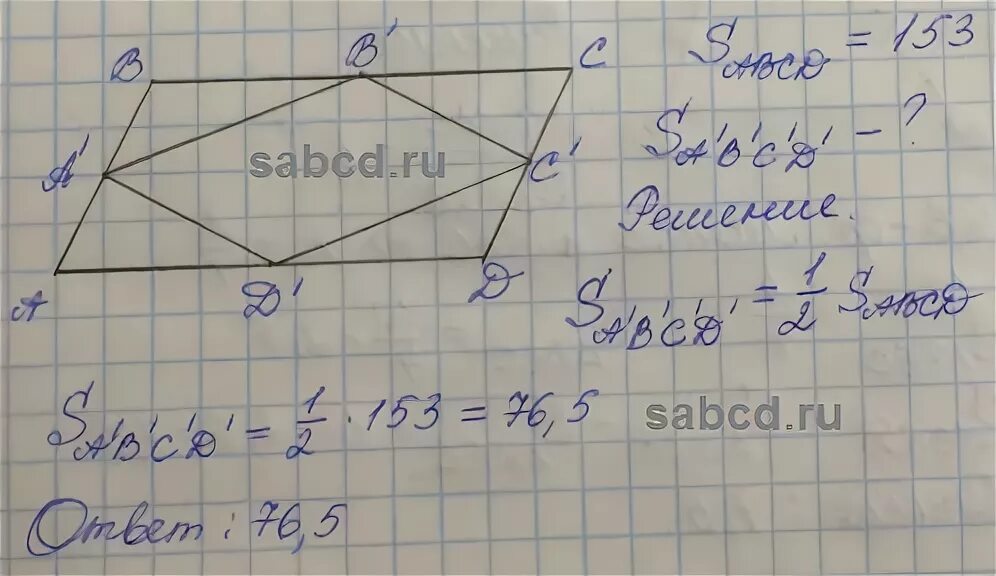 B B' C
S_ABCD = 153
A' sabcd.ru C'
S_A'B'C'D' - ?
Решение.
A D' D
S_A'B'C'D' = 1/2 S_ABCD
S_A'B'C'D' = 1/2 · 153 = 76,5
sabcd.ru
Ответ: 76,5